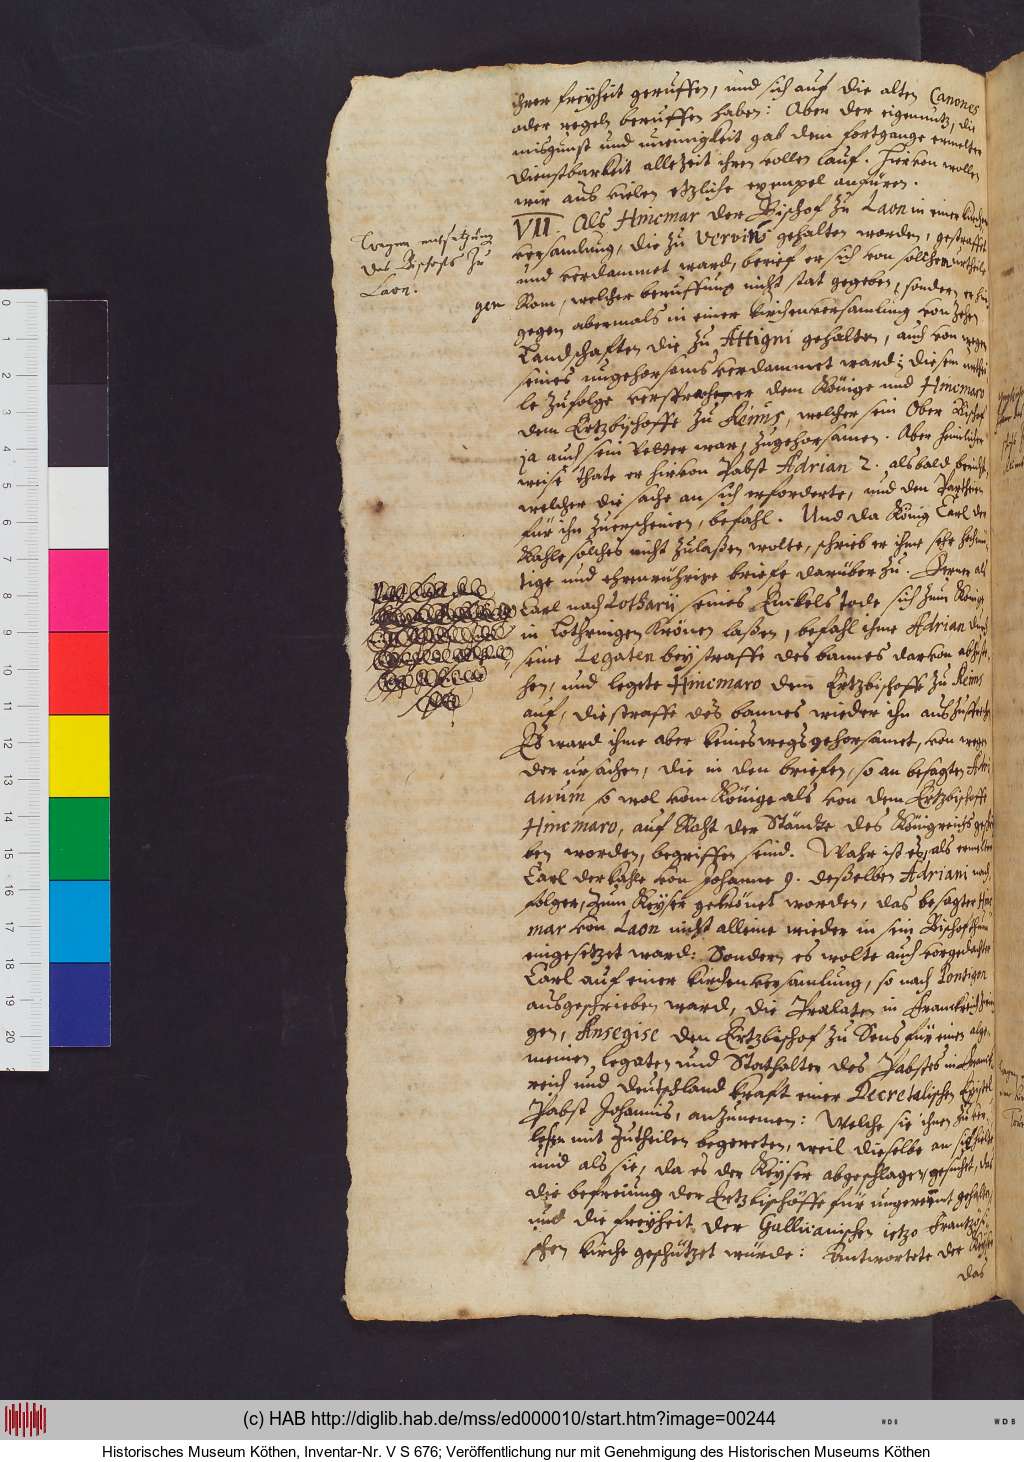 ihrer freyheit geruffen, und sich auf die alten Canones
oder regeln beruffen haben: Aber der eigennutz, die
misgunst und uneinigkeit gab dem fortgange ermelter
dienstbarkeit allezeit ihren vollen lauf. Hiervon wollen
wir aus vielen etzliche exempel anfüren.
VII. Als Hincmar der Bischof zu Laon in einer kirchen
versamlung, die zu Vervins gehalten worden, gestraffet
und verdammet ward, berief er sich von solchen urtheile
gen Rom, welcher beruffung nicht stat gegeben, sondern er hin
gegen abermals in einer kirchenversamlung von zehen
Landschaften die zu Attigni gehalten, auch von wegen
seines ungehorsams verdammet ward; diesem urthei
le zufolge versprach er dem Könige und Hincmaro
dem Ertzbischoffe zu Reims, welcher sein Ober Bischof
ja auch sein Vetter war, zugehorsamen. Aber heimlicher
weise thate er hirvon Pabst Adrian 2. alsbald bericht,
welcher die sache an sich erforderte, und den Partheien
für ihn zuerscheinen, befahl. Und da König Carl der
Kahle solches nicht zulaßen wolte, schrieb er ihme sehr hochmü-
tige und ehrenrührige briefe darüber zu. Ferner als
Carl nach Lotharii seines Enckels tode sich zum König
in Lothringen Krönen laßen, befahl ihme Adrian durch
seine Legaten bey straffe des bannes darvon abzuste-
hen, und legete Hincmaro dem Ertzbischoffe zu Reims
auf, die straffe des bannes wieder ihn auszufüren
Es ward ihme aber keineswegs gehorsamet, von wegen
der ursachen, die in den briefen, so an besagten Adri
anum so wol vom Könige als von dem Ertzbischoffe
Hincmaro, auf Raht der Stände des Königreichs geschri
ben worden, begriffen seind. Wahr ist es, als ermelter
Carl der kahle von Johanne 9. deßelben Adriani nach
folger, zum Keyser gekrönet worden, das besagter Hinc
mar von Laon nicht alleine wieder in sein Bischofthum
eingesetzet ward: Sondern es wolte auch vorgedachter
Carl auf einer kirchenversamlung, so nach Pontigon
ausgeschrieben ward, die Prälaten in Franckreich zwin
gen, Ansegise den Ertzbischof zu Sens für einen alge-
meinen Legaten und Stathalter des Pabstes in Franck
reich und Deutschland kraft einer Decretalischen Epistel
Pabst Johannis, anzunemen: Welche sie ihnen zuver
lesen mit zutheilen begereten, weil dieselbe an sie hielte
und als sie, da es der Keyser abgeschlagen, gesuchet, das
die befreiung der Ertzbischöffe für ungereumt gehalten,
und die freyheit der Gallicanischen ietzo Frantzösi
schen kirche geschützet würde: Antwortete der Keyser
das
Wegen entsetzung
des Bischofs zu
Laon.
0
1
2
3
4
5
6
7
8
9
10
11
12
13
14
15
16
17
18
19
20
(c) HAB http://diglib.hab.de/mss/ed000010/start.htm?image=00244
WDB
WDB
Historisches Museum Köthen, Inventar-Nr. V S 676; Veröffentlichung nur mit Genehmigung des Historischen Museums Köthen